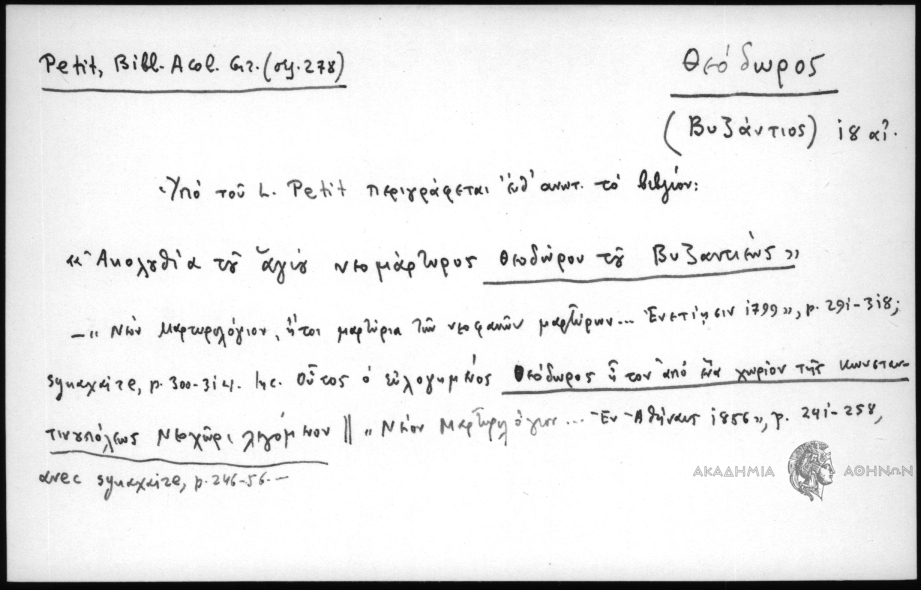 Petit, Bibl. Acol. Gr. (σελ. 278)
Θεόδωρος
(Βυζάντιος) 18 αἰ.
Ὑπό τοῦ L. Petit περιγράφεται ἐνθ' ἀνωτ. τό βιβλίον:
«Ἀκολουθία τοῦ ἁγίου νεομάρτυρος Θεοδώρου τοῦ Βυζαντίου»
— «Νέον Μαρτυρολόγιον, ἤτοι μαρτύρια τῶν νεοφανῶν μαρτύρων... Ἐνετίησιν 1799», p. 291-318;
synaxaire, p. 300-314. Inc. Οὗτος ὁ εὐλογημένος Θεόδωρος ἦτον ἀπό ἕνα χωρίον τῆς Κωνσταν-
τινουπόλεως Νεοχῶρι λεγόμενον || «Νέον Μαρτυρολόγιον... Ἐν Ἀθήναις 1856», p. 241-258,
avec synaxaire, p. 246-56.—
ΑΚΑΔΗΜΙΑ ΑΘΗΝΩΝ